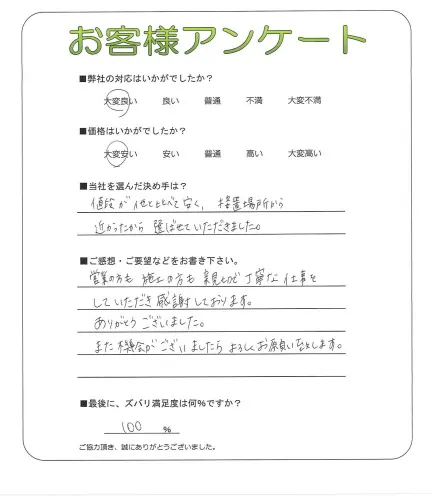 お客様アンケート
■弊社の対応はいかがでしたか？
大変良い 良い 普通 不満 大変不満
■価格はいかがでしたか？
大変安い 安い 普通 高い 大変高い
■当社を選んだ決め手は？
値段が他と比べて安く、設置場所から
近かったから 選ばせていただきました。
■ご感想・ご要望などをお書き下さい。
営業の方も 施工の方も 親切で 丁寧な 仕事を
していただき 感謝しております。
ありがとうございました。
また機会がございましたら よろしくお願い致します。
■最後に、ズバリ満足度は何％ですか？
100 ％
ご協力頂き、誠にありがとうございました。